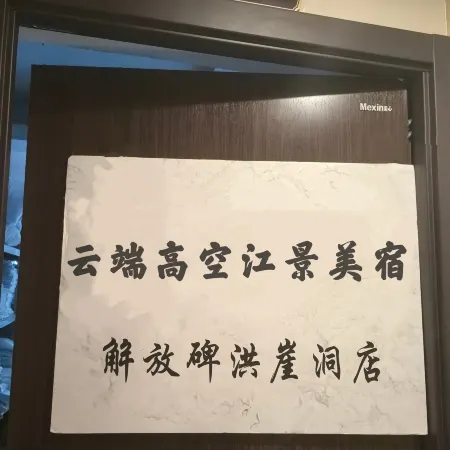 Mexin美心
云端高空江景美宿
解放碑洪崖洞店